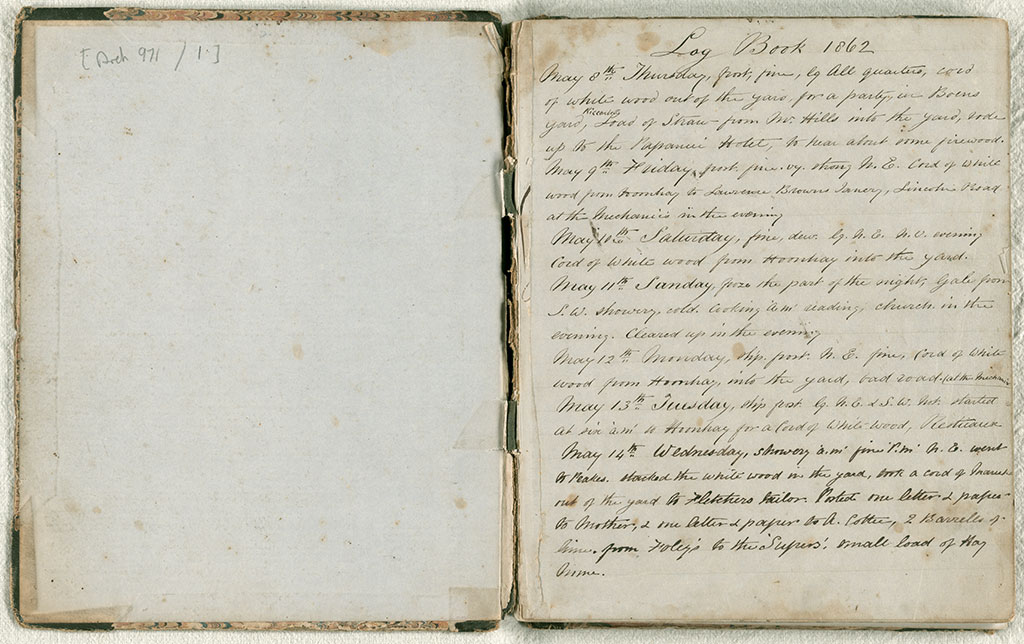 [Arch 971 / 1.]
Log Book 1862
May 8th Thursday, frost, fine, lg All quarters, cord
of white wood out of the yard for a party, in
yard, Load of Straw from Mr Hills into the yard, rode
up to the Papanui Hotel, to hear about some firewood.
May 9th Friday, frost, fine. vy. strong N. E. Cord of White
wood from Hoonhay to Lawrence Browns Tanery, Lincoln Road
at the Mechanics in the evening
May 10th Saturday, fine, dew. lg. N. E. N. W. evening
Cord of White wood from Hoonhay into the yard.
May 11th Sunday, froze the part of the night, Gale from
S. W. showery, cold. Cooking a.m. reading, church. in the
evening. Cleared up in the evening
May 12th Monday, slip. frost. N. E. fine, Cord of White
wood from Hoonhay, into the yard, bad road. (at the Mechanics
May 13th Tuesday, slip frost lg. N. E. & S. W. started
at six a.m. to Hoonhay for a Cord of White Wood,
May 14th Wednesday, showery a.m. fine P.m. N. E. went
to Peakes. stacked the white wood in the yard, took a cord of
out of the yard to Fletchers tailor. Posted one letter & paper
to Mother, & one letter & paper to A. Cotter, 2 Barrells of
lime. from Foley's to the 'Supers'. small load of Hay
home.